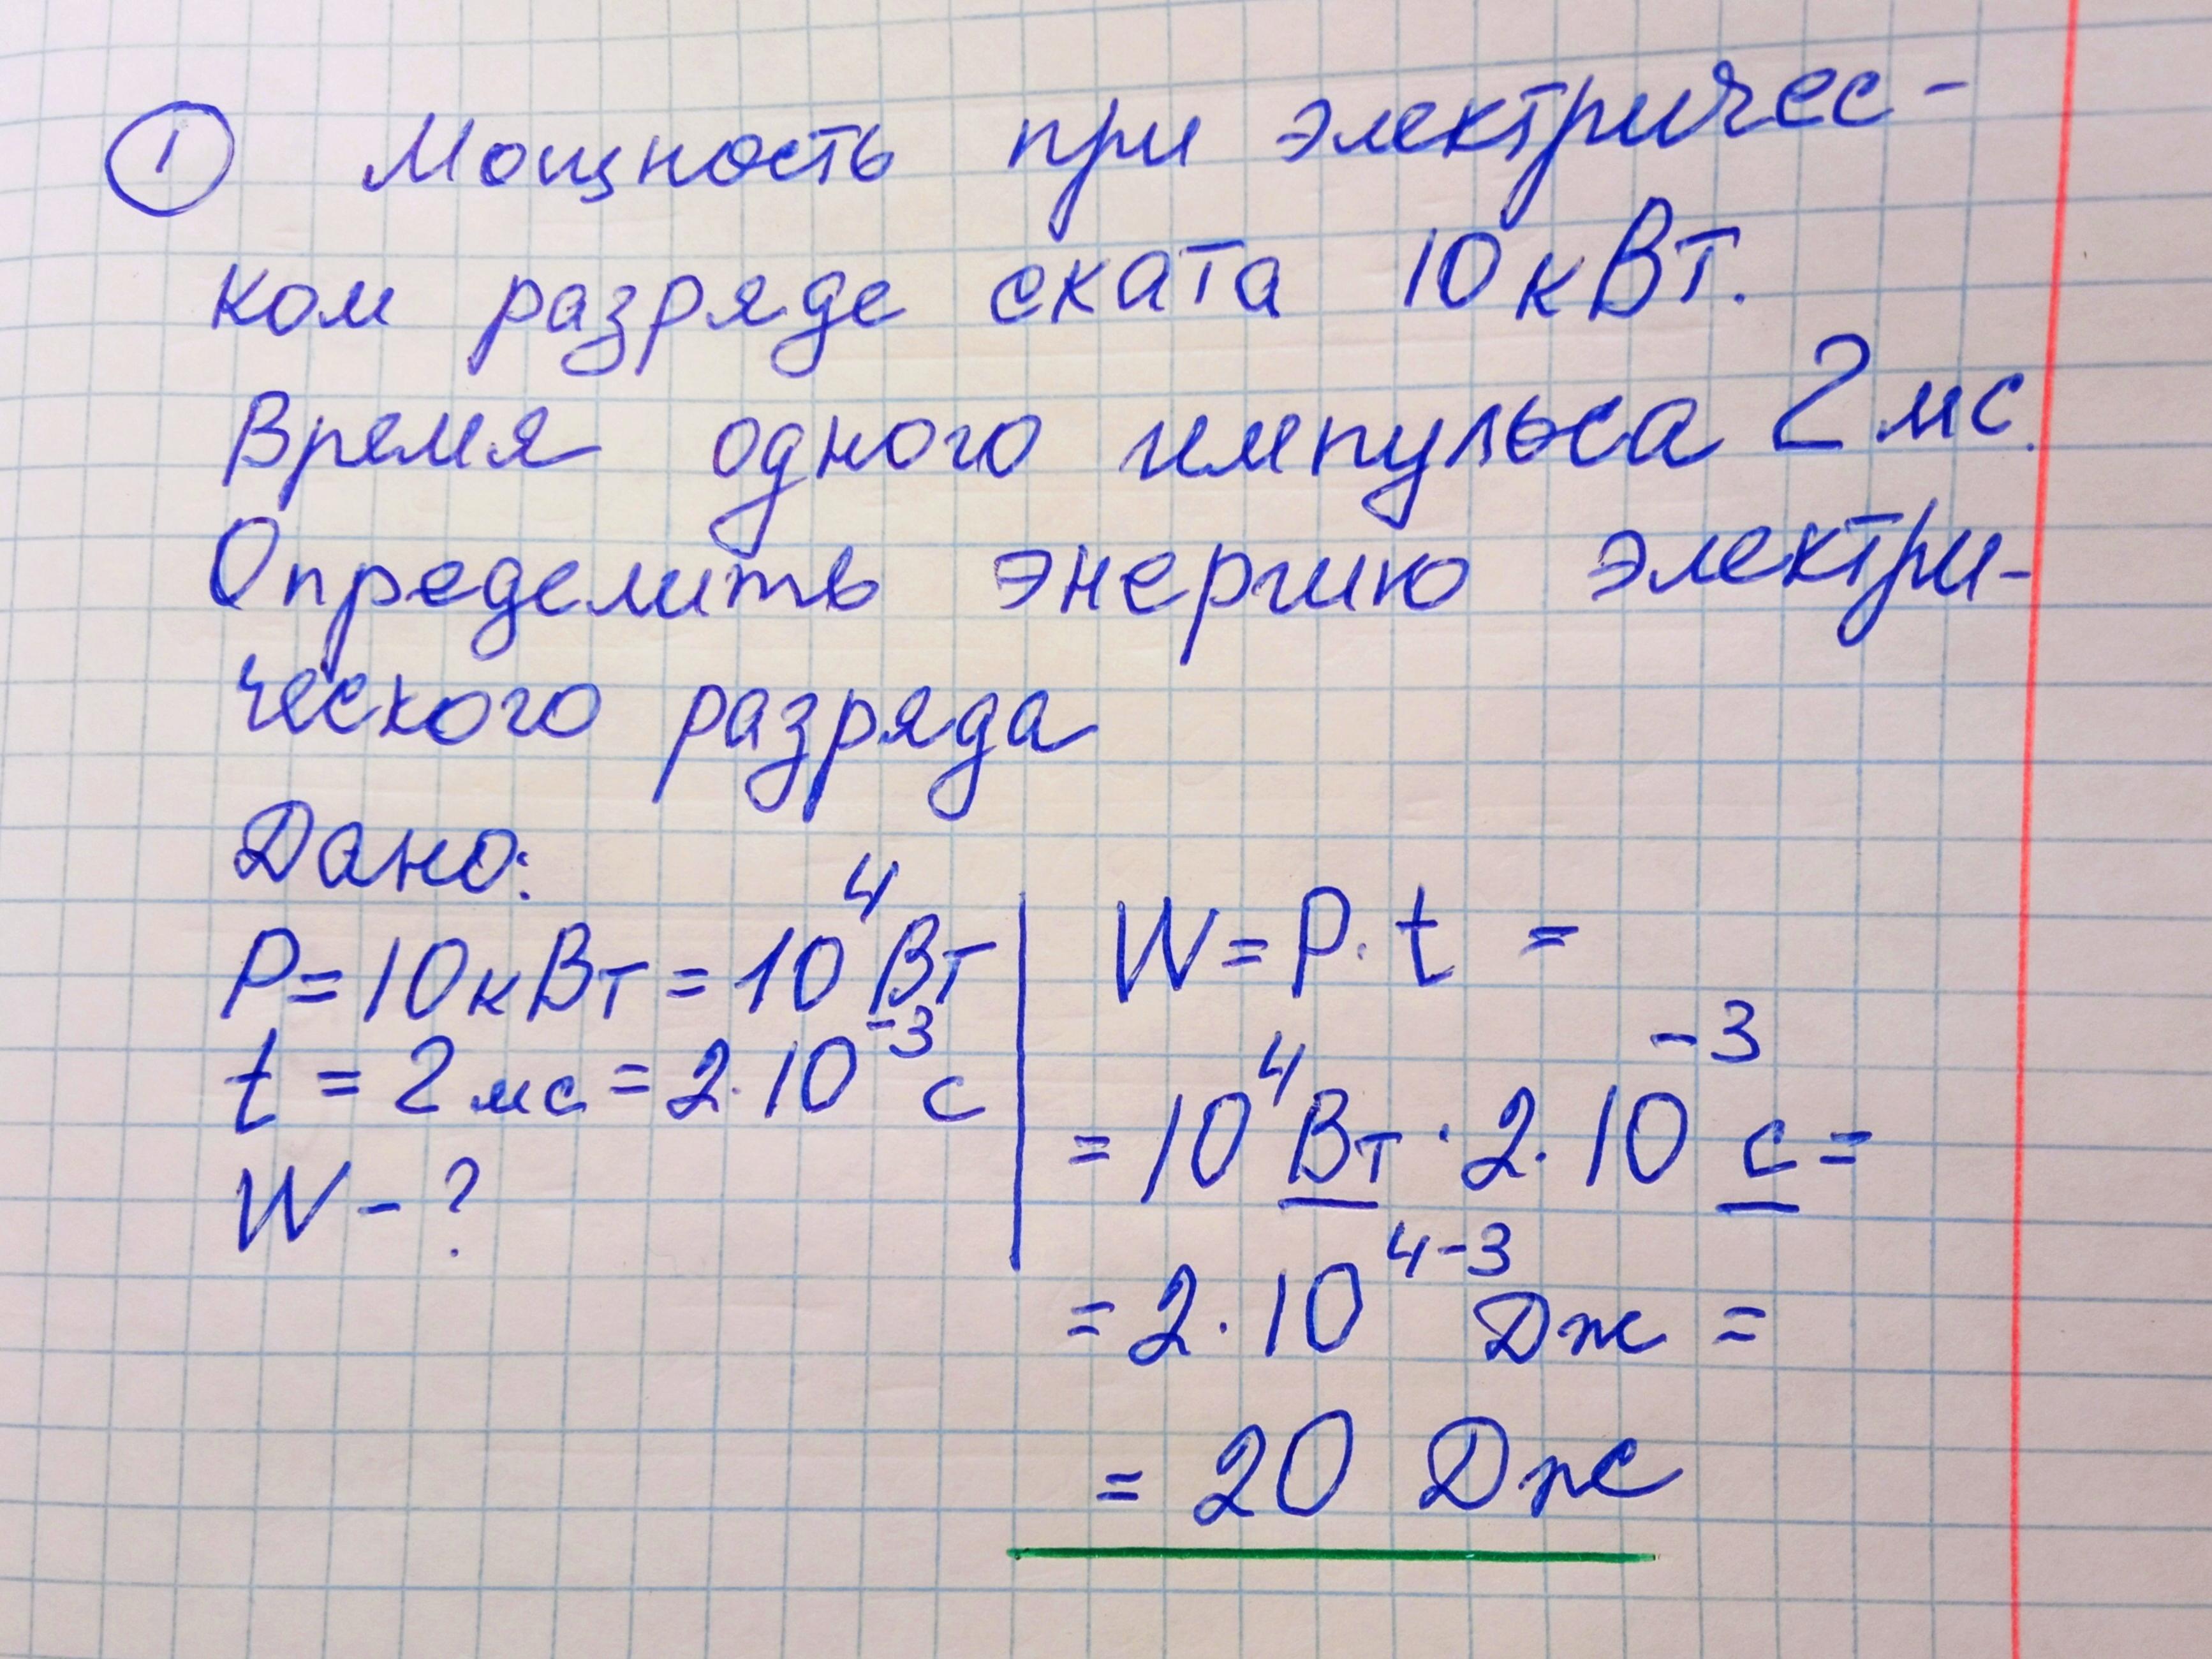 ① Мощность при электричес-
ком разряде ската 10 кВт.
Время одного импульса 2 мс.
Определить энергию электри-
ческого разряда
Дано:
P = 10 кВт = 10⁴ Вт
t = 2 мс = 2·10⁻³ с
W - ?
W = P · t =
= 10⁴ Вт · 2 · 10⁻³ с =
= 2 · 10⁴⁻³ Дж =
= 20 Дж